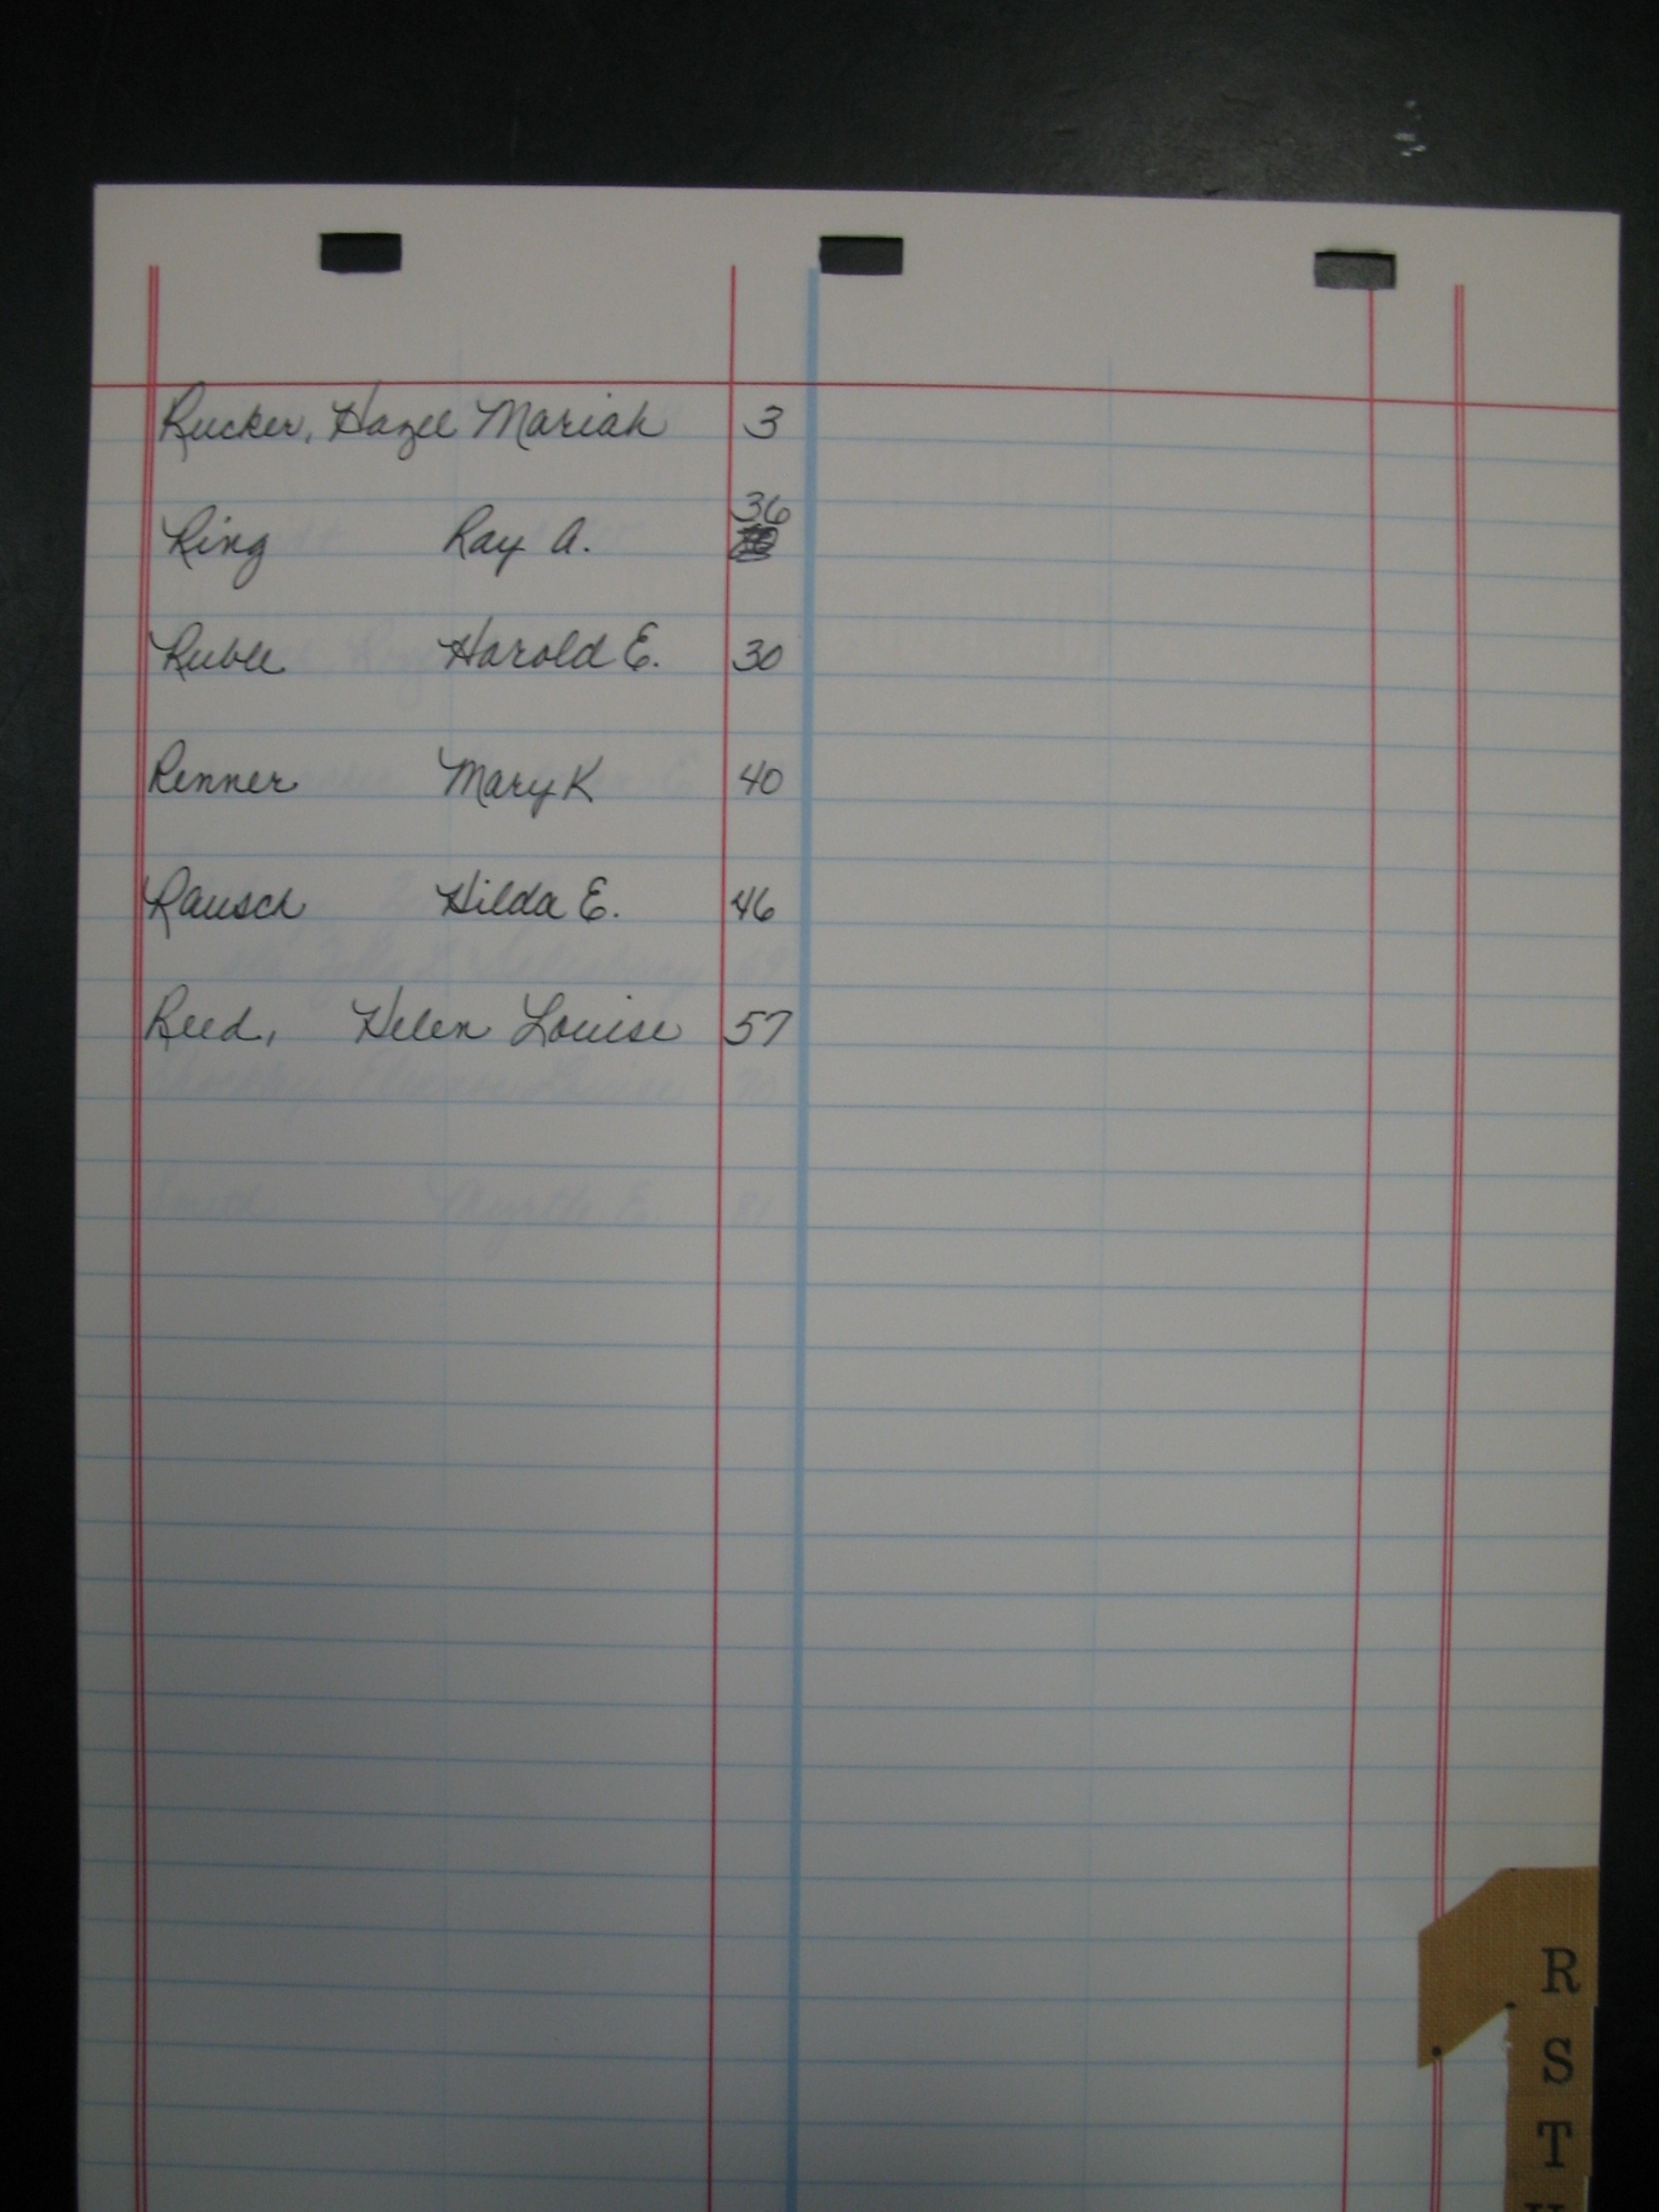 Rucker, Hazel Mariah 3
36
Ring Ray A.
Ruble Harold E. 30
Renner Mary K 40
Rausch Hilda E. 46
Reed, Helen Louise 57
R
S
T